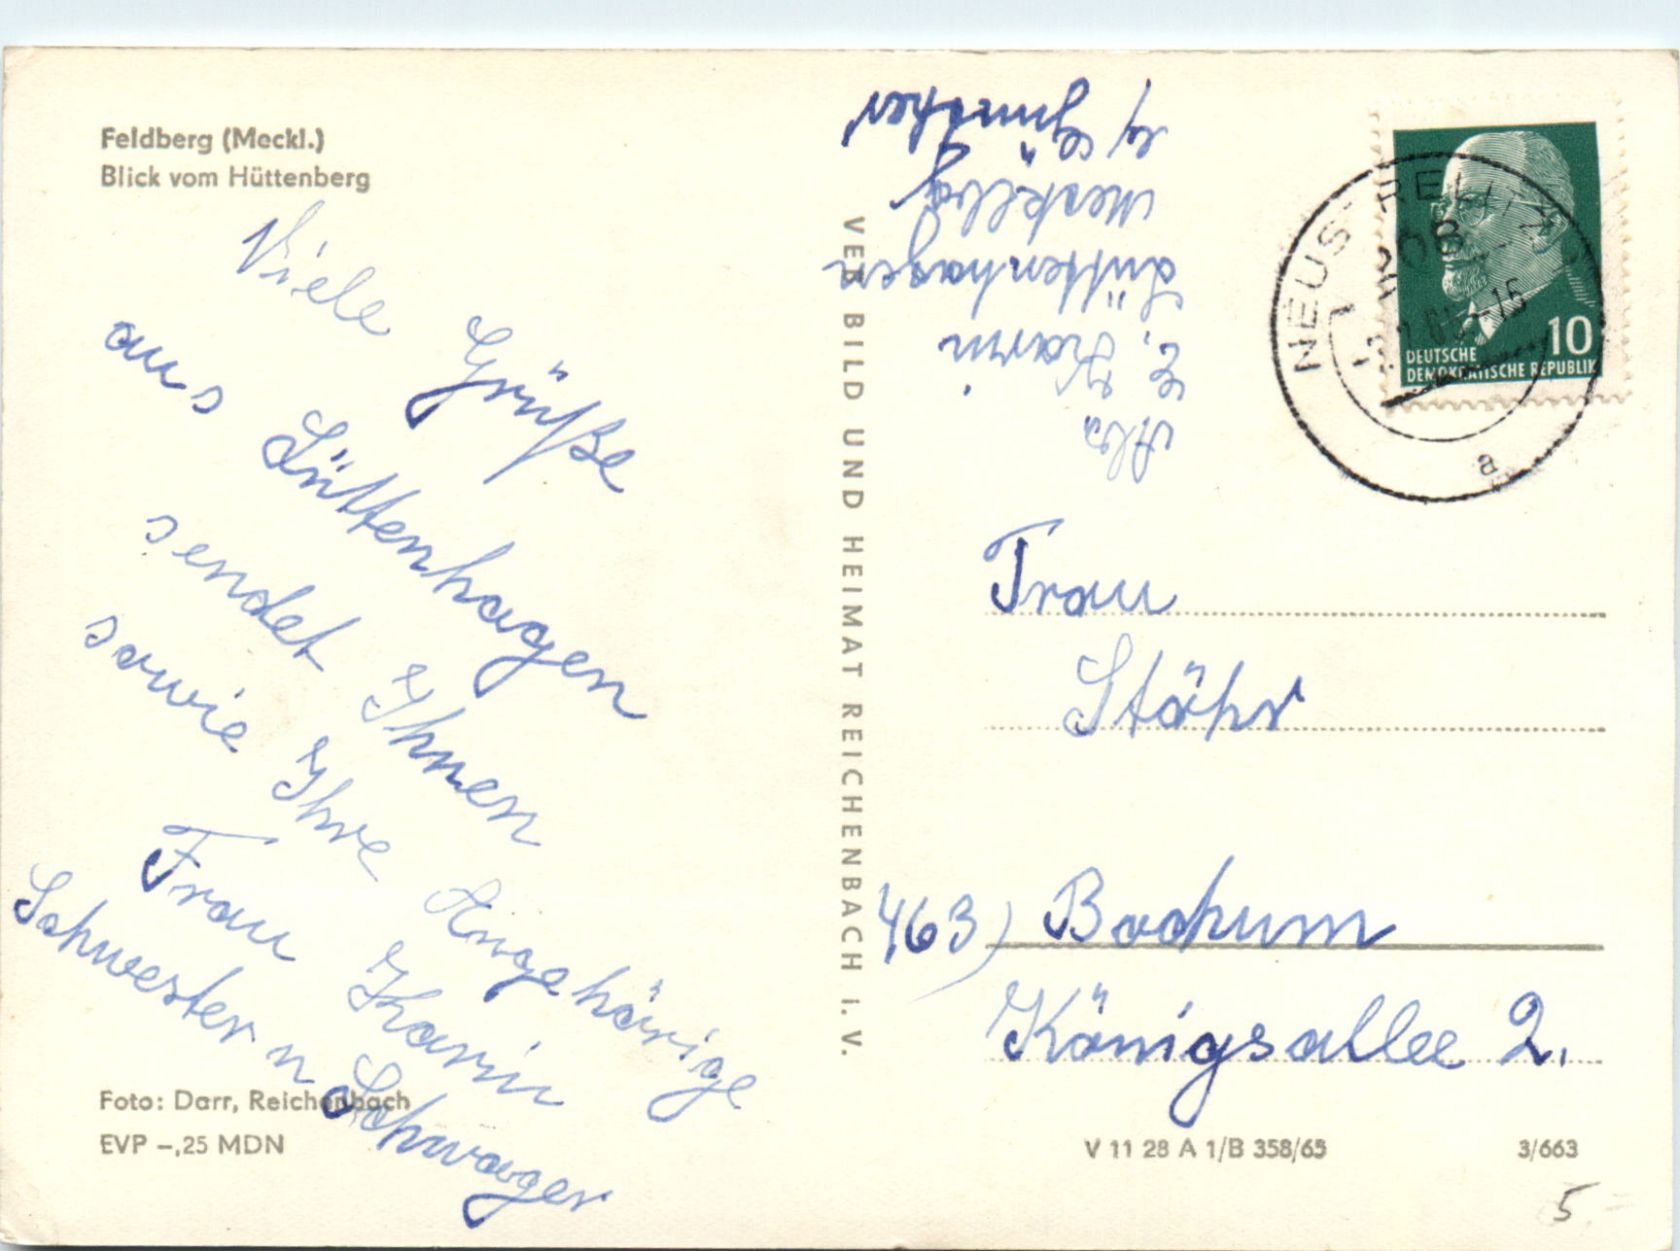 Feldberg (Meckl.)
Blick vom Hüttenberg
Viele Grüße
aus Lüttenhagen
sendet Ihnen
sowie Ihre Angehörige
Frau Karin
Schwester n Schwager
Foto: Darr, Reichenbach
EVP –,25 MDN
VEB BILD UND HEIMAT REICHENBACH I. V.
Abs.
Karin
Lüttenhagen
NEUSTRELITZ
a
10
DEUTSCHE
DEMOKRATISCHE REPUBLIK
Frau
Stöhr
463) Bochum
Königsallee 2.
V 11 28 A 1/B 358/65
3/663
5